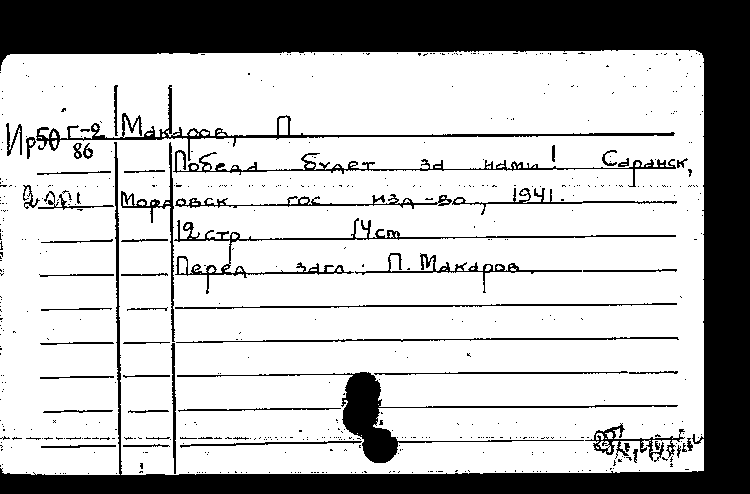 Ир50 Г-2
86
Макаров, П.
Победа будет за нами! Саранск,
Мордовск. гос. изд-во, 1941.
12 стр. 14 cm
Перед загл.: П. Макаров.